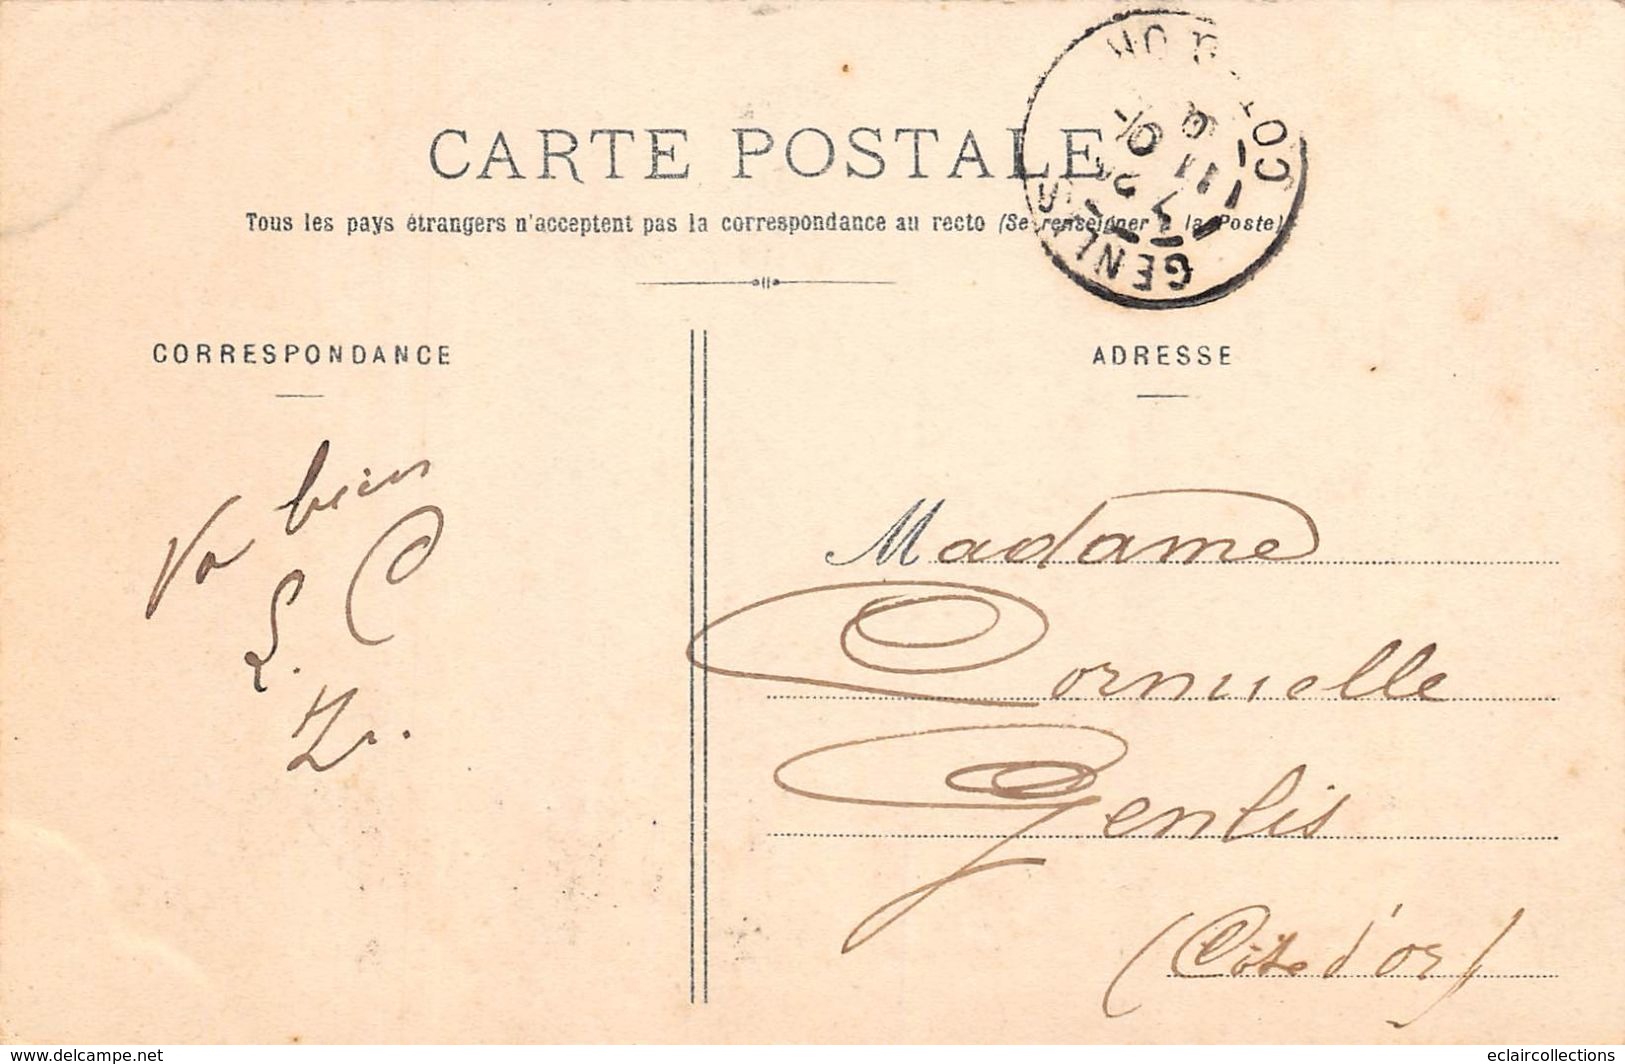 CARTE POSTALE
Tous les pays étrangers n'acceptent pas la correspondance au recto (Se renseigner à la Poste)
GENLIS
CORRESPONDANCE
ADRESSE
Va bien
Madame
Cornuelle
Genlis
(Côte d'or)
www.delcampe.net
eclaircollections